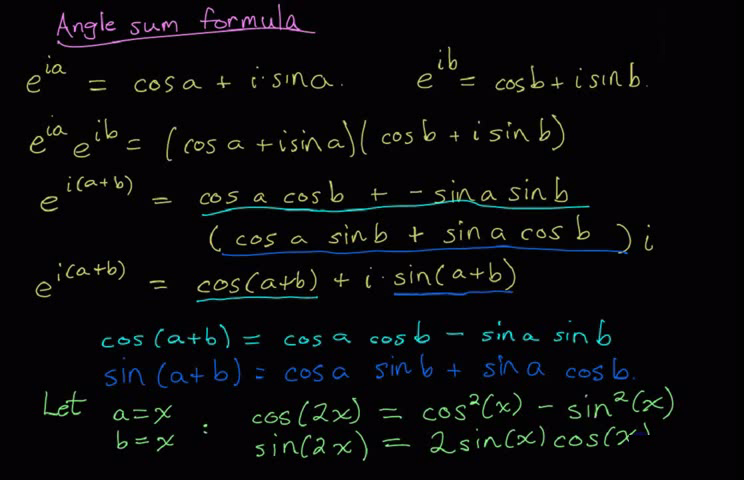 Angle sum formula
e^{ia} = cos a + i·sin a. e^{ib} = cos b + i sin b.
e^{ia} e^{ib} = (cos a + i sin a)(cos b + i sin b)
e^{i(a+b)} = cos a cos b + - sin a sin b
(cos a sin b + sin a cos b) i
e^{i(a+b)} = cos(a+b) + i·sin(a+b)
cos(a+b) = cos a cos b - sin a sin b
sin(a+b) = cos a sin b + sin a cos b.
Let a=x : cos(2x) = cos²(x) - sin²(x)
b=x sin(2x) = 2sin(x)cos(x)